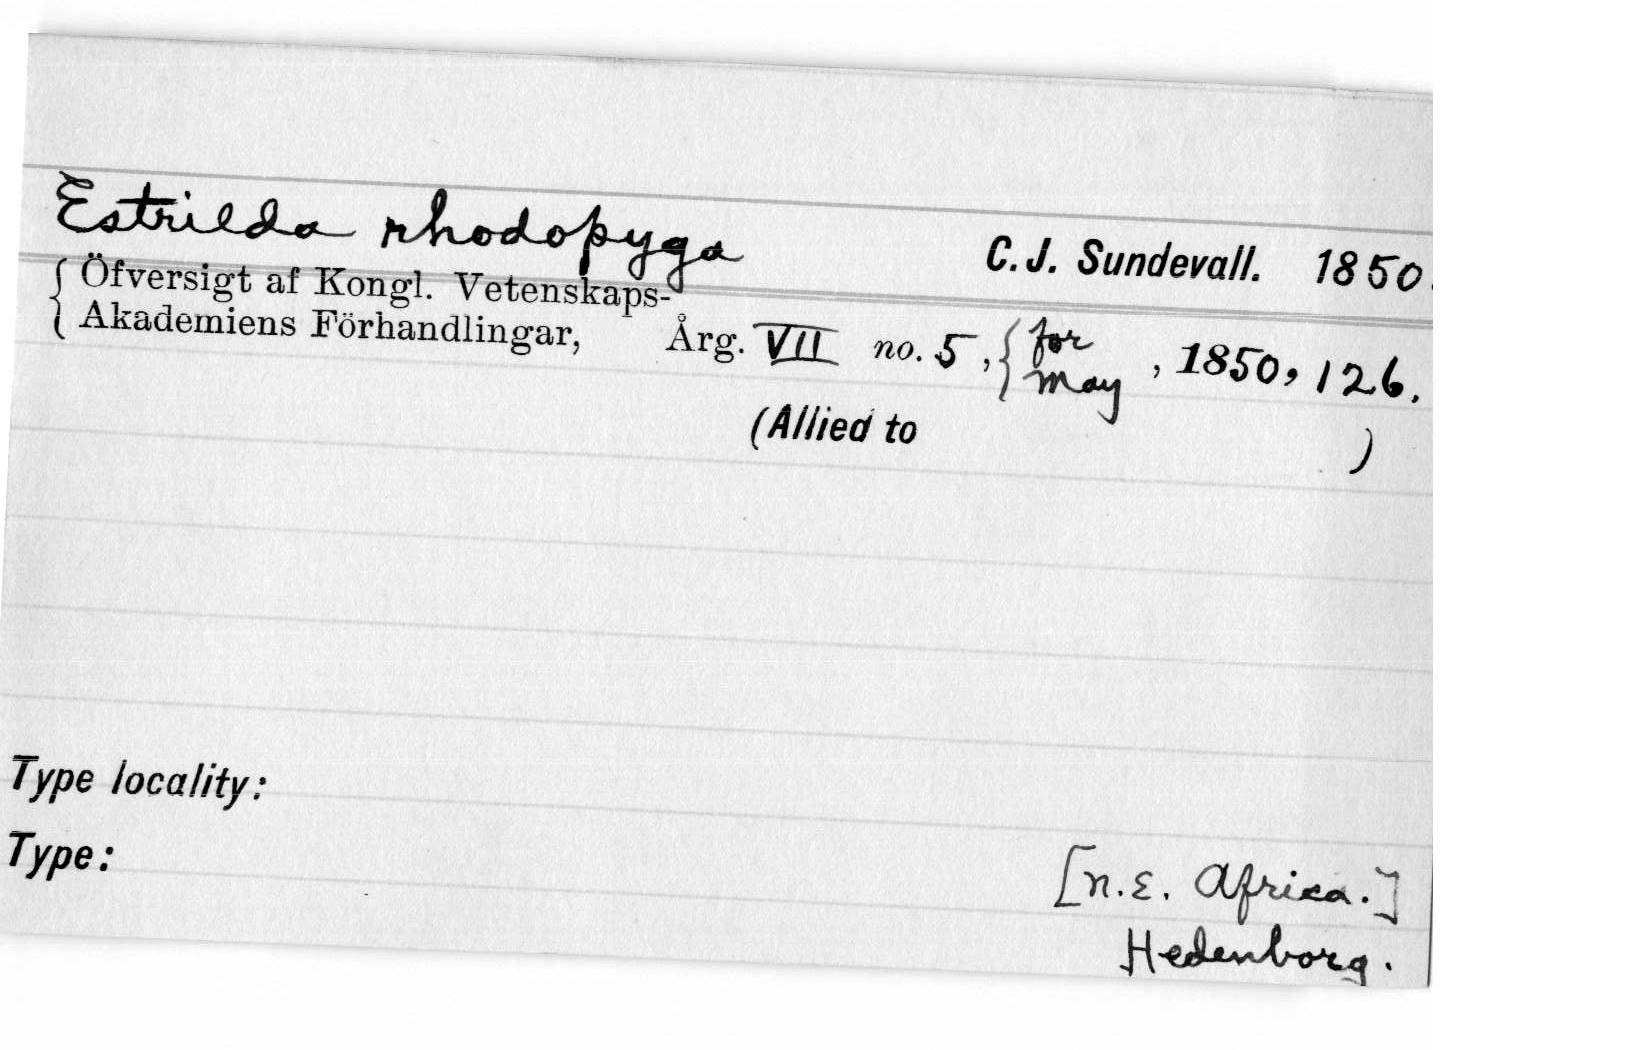 Estrilda rhodopyga
C. J. Sundevall. 1850.
{ Öfversigt af Kongl. Vetenskaps-
Akademiens Förhandlingar, Årg. VII no. 5, { for May, 1850, 126.
(Allied to )
Type locality:
Type:
[n.E. Africa.]
Hedenborg.